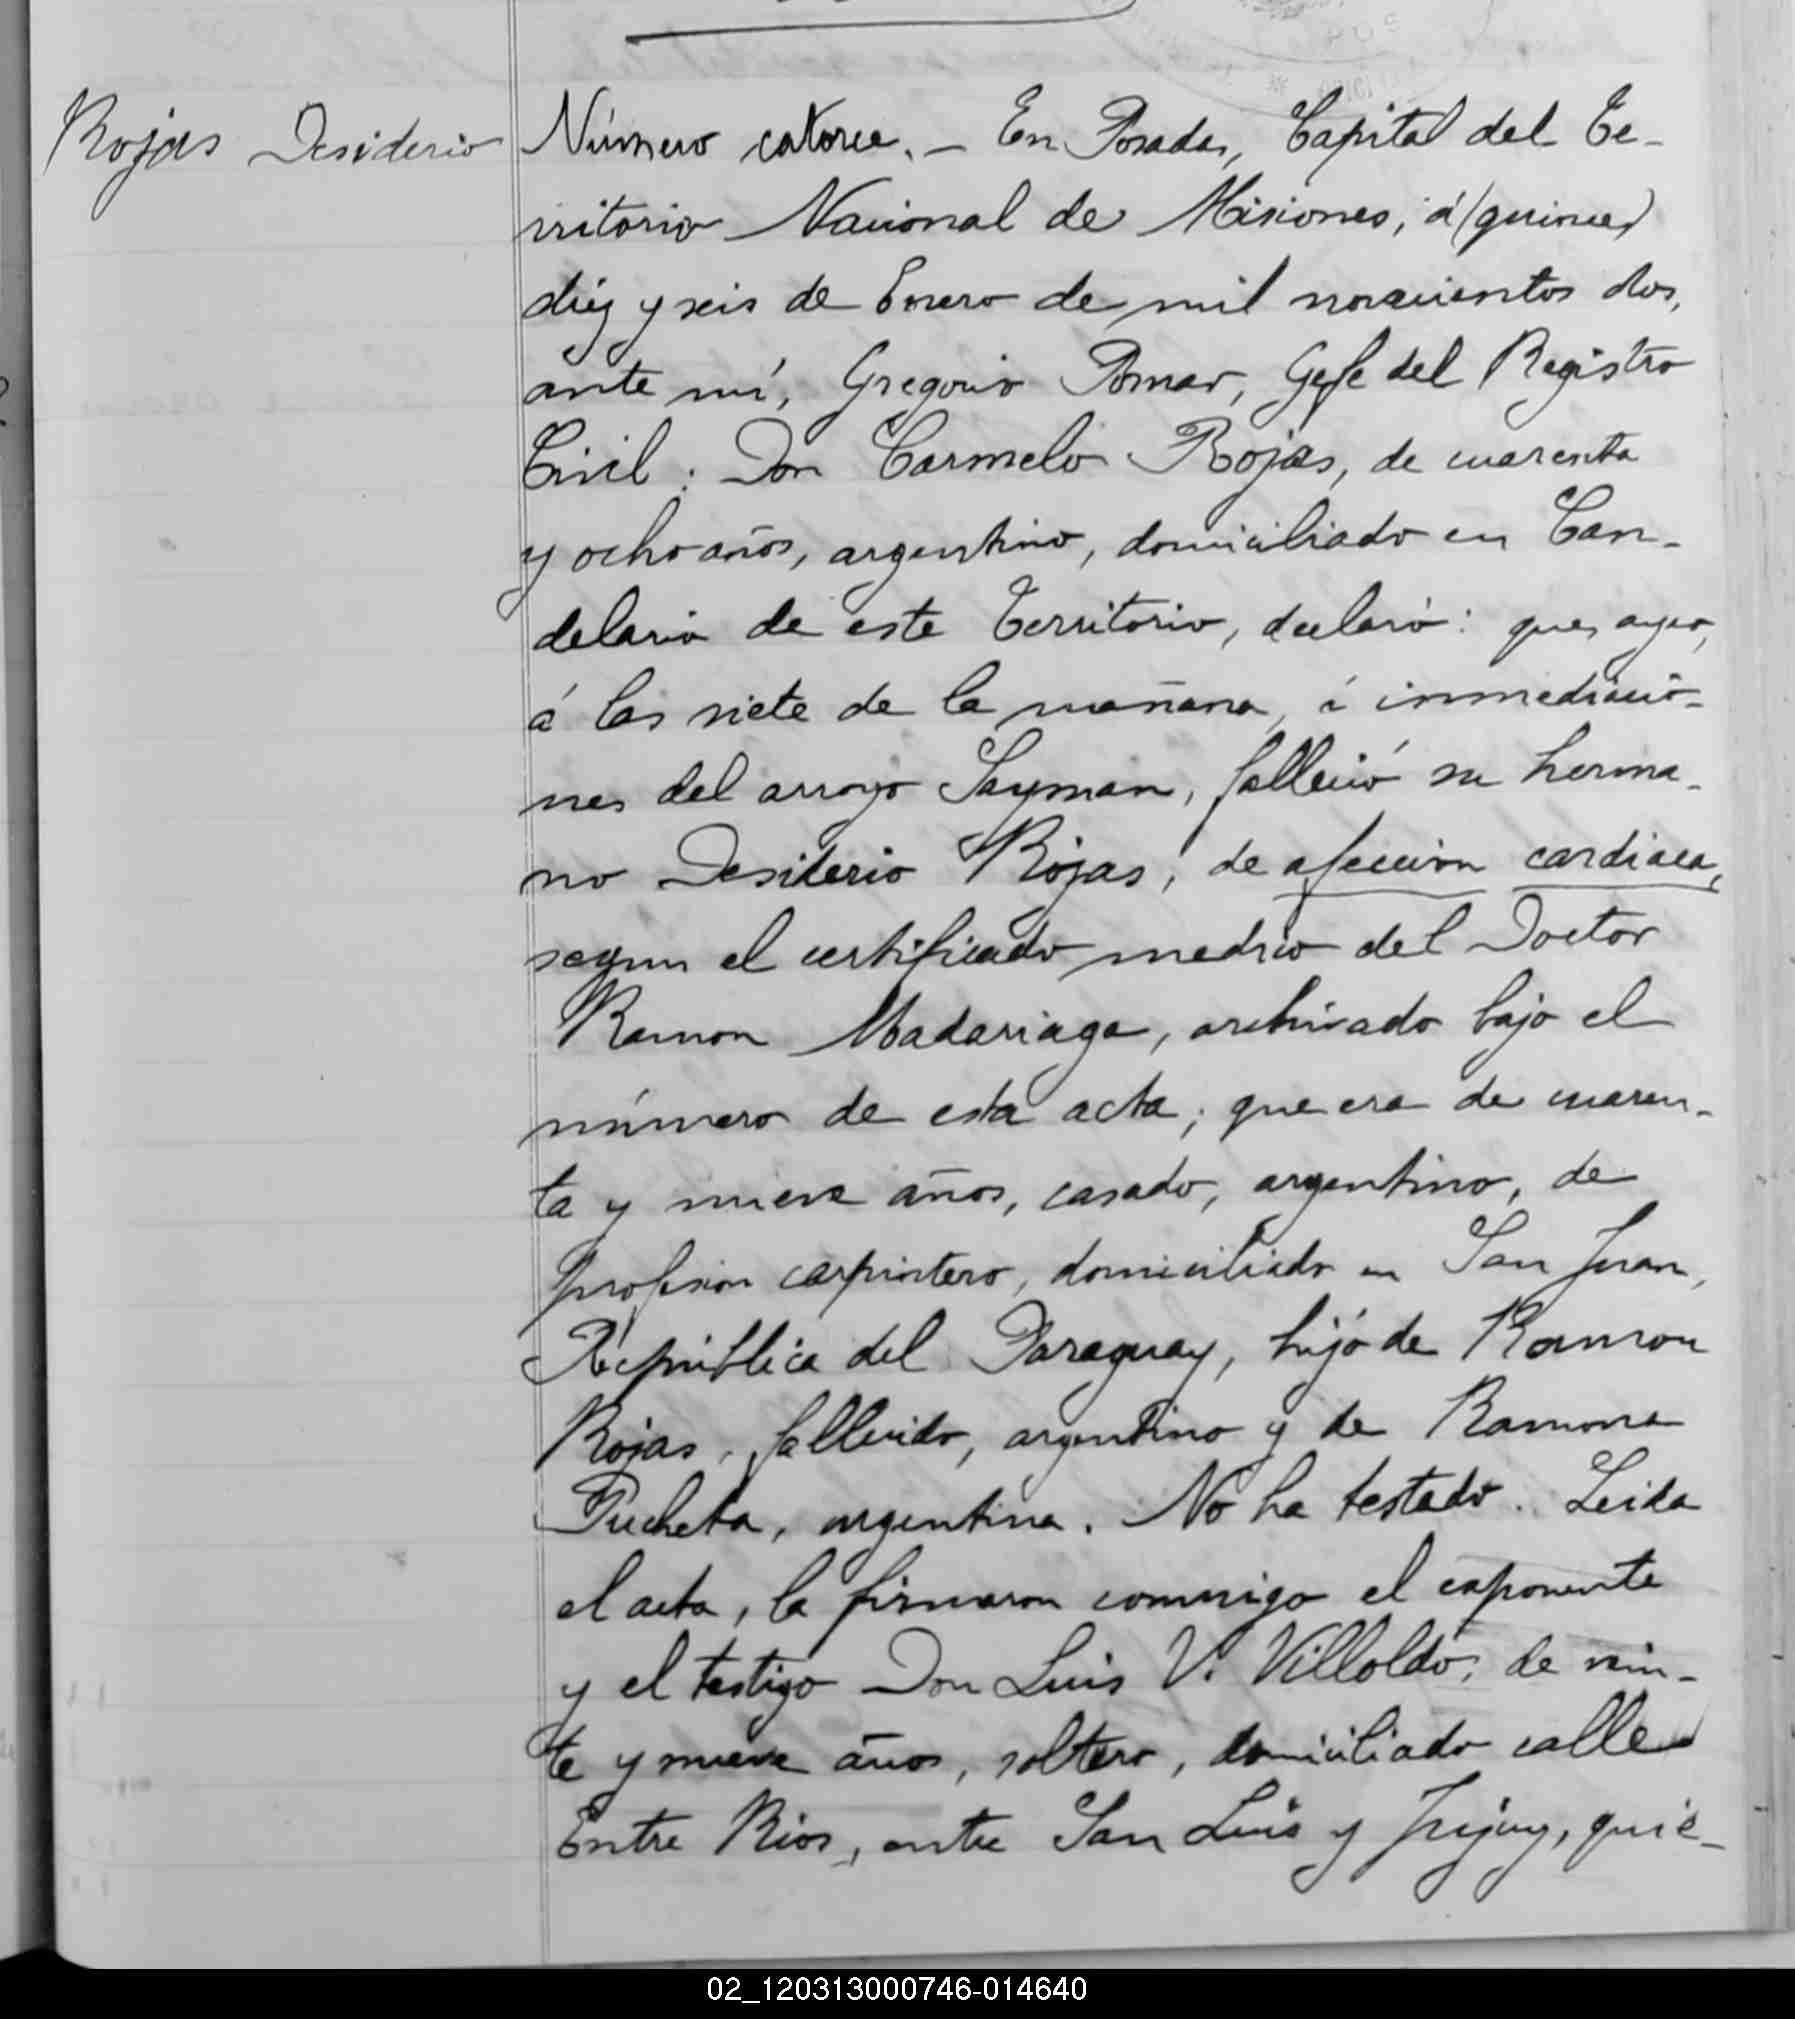 Rojas Desiderio
Número catorce. — En Posadas, Capital del Te-
rritorio Nacional de Misiones, á (quince)
diez y seis de Enero de mil novecientos dos,
ante mí, Gregorio Pomar, Gefe del Registro
Civil: Don Carmelo Rojas, de cuarenta
y ocho años, argentino, domiciliado en Can-
delaria de este Territorio, declaró: que, ayer,
á las siete de la mañana, á inmediacio-
nes del arroyo Sayman, falleció su herma-
no Desiderio Rojas, de afección cardiaca,
segun el certificado medico del Doctor
Ramon Madariaga, archivado bajo el
número de esta acta; que era de cuaren-
ta y nueve años, casado, argentino, de
profesion carpintero, domiciliado en San Juan,
República del Paraguay, hijo de Ramon
Rojas, fallecido, argentino y de Ramona
Pucheta, argentina. No ha testado. Leida
el acta, la firmaron conmigo el exponente
y el testigo Don Luis V. Villoldo, de vein-
te y nueve años, soltero, domiciliado calle
Entre Rios, entre San Luis y Jujuy, quie-
02_120313000746-014640